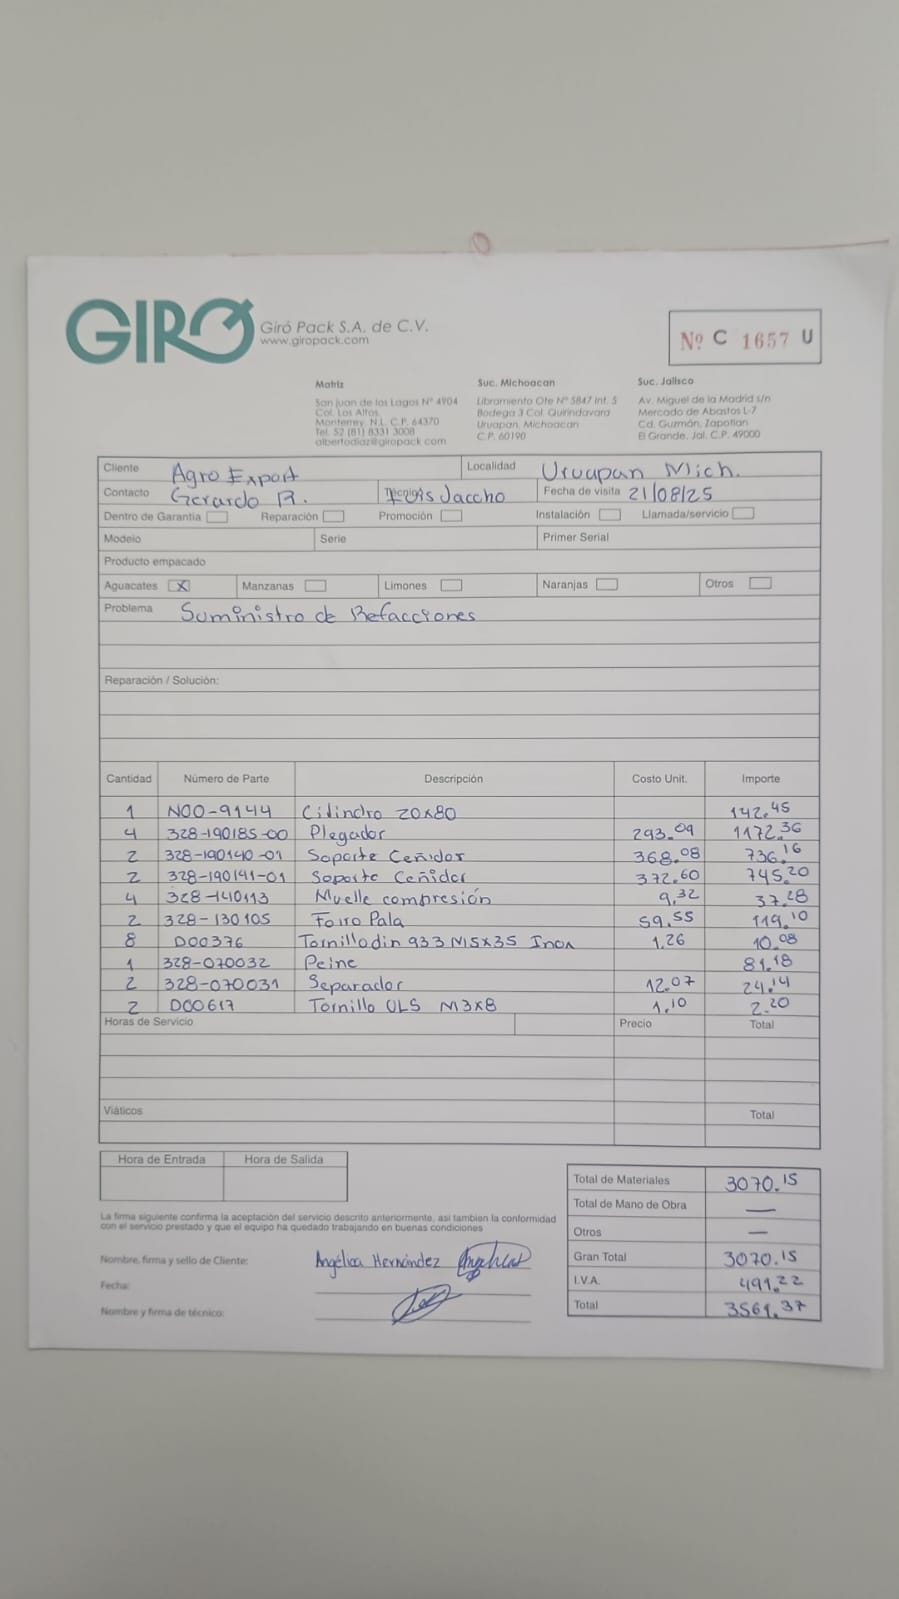 GIRO Giró Pack S.A. de C.V.
www.giropack.com
Nº C 1657 U
Matriz
San juan de los Lagos Nº 4904
Col. Los Altos,
Monterrey, N.L. C.P. 64370
Tel. 52 (81) 8331 3008
albertodiaz@giropack.com
Suc. Michoacan
Libramiento Ote Nº 5847 Int. 5
Bodega 3 Col. Quirindavara
Uruapan, Michoacan
C.P. 60190
Suc. Jalisco
Av. Miguel de la Madrid s/n
Mercado de Abastos L-7
Cd. Guzmán, Zapotlan
El Grande, Jal. C.P. 49000
Cliente Agro Export Localidad Uruapan Mich.
Contacto Gerardo R. Técnico Luis Jaccho Fecha de visita 21/08/25
Dentro de Garantía Reparación Promoción Instalación Llamada/servicio
Modelo Serie Primer Serial
Producto empacado
Aguacates X Manzanas Limones Naranjas Otros
Problema Suministro de Refacciones
Reparación / Solución:
Cantidad Número de Parte Descripción Costo Unit. Importe
1 N00-9144 Cilindro 20x80 142.45
4 328-190185-00 Plegador 293.09 1172.36
2 328-190140-01 Soporte Ceñidor 368.08 736.16
2 328-190141-01 Soporte Ceñidor 372.60 745.20
4 328-140113 Muelle compresión 9.32 37.28
2 328-130105 Forro Pala 59.55 119.10
8 D00376 Tornillo din 933 M5x35 Inox 1.26 10.08
1 328-070032 Peine 81.18
2 328-070031 Separador 12.07 24.14
2 D00617 Tornillo ULS M3x8 1.10 2.20
Horas de Servicio Precio Total
Viáticos Total
Hora de Entrada Hora de Salida
Total de Materiales 3070.15
Total de Mano de Obra —
Otros —
Gran Total 3070.15
I.V.A. 491.22
Total 3561.37
La firma siguiente confirma la aceptación del servicio descrito anteriormente, asi tambien la conformidad
con el servicio prestado y que el equipo ha quedado trabajando en buenas condiciones
Nombre, firma y sello de Cliente: Angélica Hernández
Fecha:
Nombre y firma de técnico: